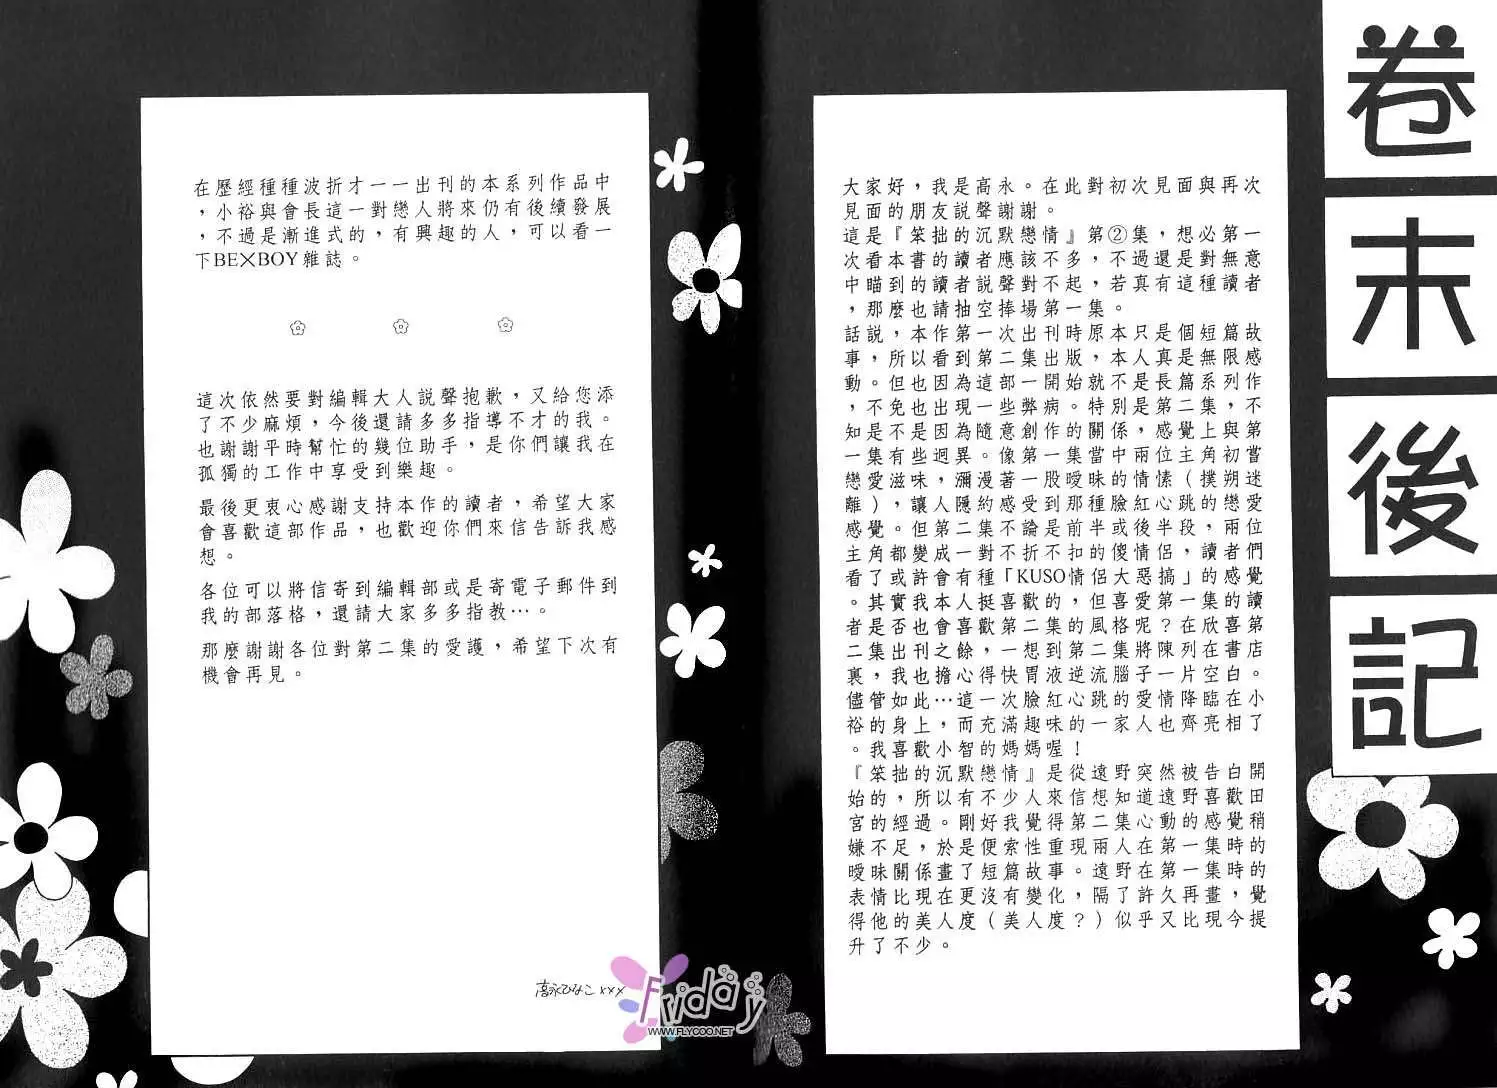 卷末後記
大家好，我是高永。在此對初次見面與再次
見面的朋友說聲謝謝。
這是『笨拙的沉默戀情』第②集，想必第一
次看本書的讀者應該不多，不過還是對無意
中瞄到的讀者說聲對不起，若真有這種讀者
，那麼也請抽空捧場第一集。
話說，本作第一次出刊時原本只是個短篇故
事，所以看到第二集出版，本人真是無限感
動。但也因為這部一開始就不是長篇系列作
，不免也出現一些弊病。特別是第二集，不
知是不是因為隨意創作的關係，感覺上與第
一集有些迥異。像第一集當中兩位主角初嘗
戀愛滋味，瀰漫著一股曖昧的情愫（撲朔迷
離），讓人隱約感受到那種臉紅心跳的戀愛
感覺。但第二集不論是前半或後半段，兩位
主角都變成一對不折不扣的傻情侶，讀者們
看了或許會有種「KUSO情侶大惡搞」的感覺
。其實我本人挺喜歡的，但喜愛第一集的讀
者是否也會喜歡第二集的風格呢？在欣喜第
二集出刊之餘，一想到第二集將陳列在書店
裏，我也擔心得快胃液逆流腦子一片空白。
儘管如此…這一次臉紅心跳的愛情降臨在小
裕的身上，而充滿趣味的一家人也齊亮相了
。我喜歡小智的媽媽喔！
『笨拙的沉默戀情』是從遠野突然被告白開
始的，所以有不少人來信想知道遠野喜歡田
宮的經過。剛好我覺得第二集心動的感覺稍
嫌不足，於是便索性重現兩人在第一集時的
曖昧關係畫了短篇故事。遠野在第一集時的
表情比現在更沒有變化，隔了許久再畫，覺
得他的美人度（美人度？）似乎又比現今提
升了不少。
在歷經種種波折才一一出刊的本系列作品中
，小裕與會長這一對戀人將來仍有後續發展
，不過是漸進式的，有興趣的人，可以看一
下BE×BOY雜誌。
這次依然要對編輯大人說聲抱歉，又給您添
了不少麻煩，今後還請多多指導不才的我。
也謝謝平時幫忙的幾位助手，是你們讓我在
孤獨的工作中享受到樂趣。
最後更衷心感謝支持本作的讀者，希望大家
會喜歡這部作品，也歡迎你們來信告訴我感
想。
各位可以將信寄到編輯部或是寄電子郵件到
我的部落格，還請大家多多指教…。
那麼謝謝各位對第二集的愛護，希望下次有
機會再見。
高永ひなこ×××
Friday
WWW.FLYCOO.NET